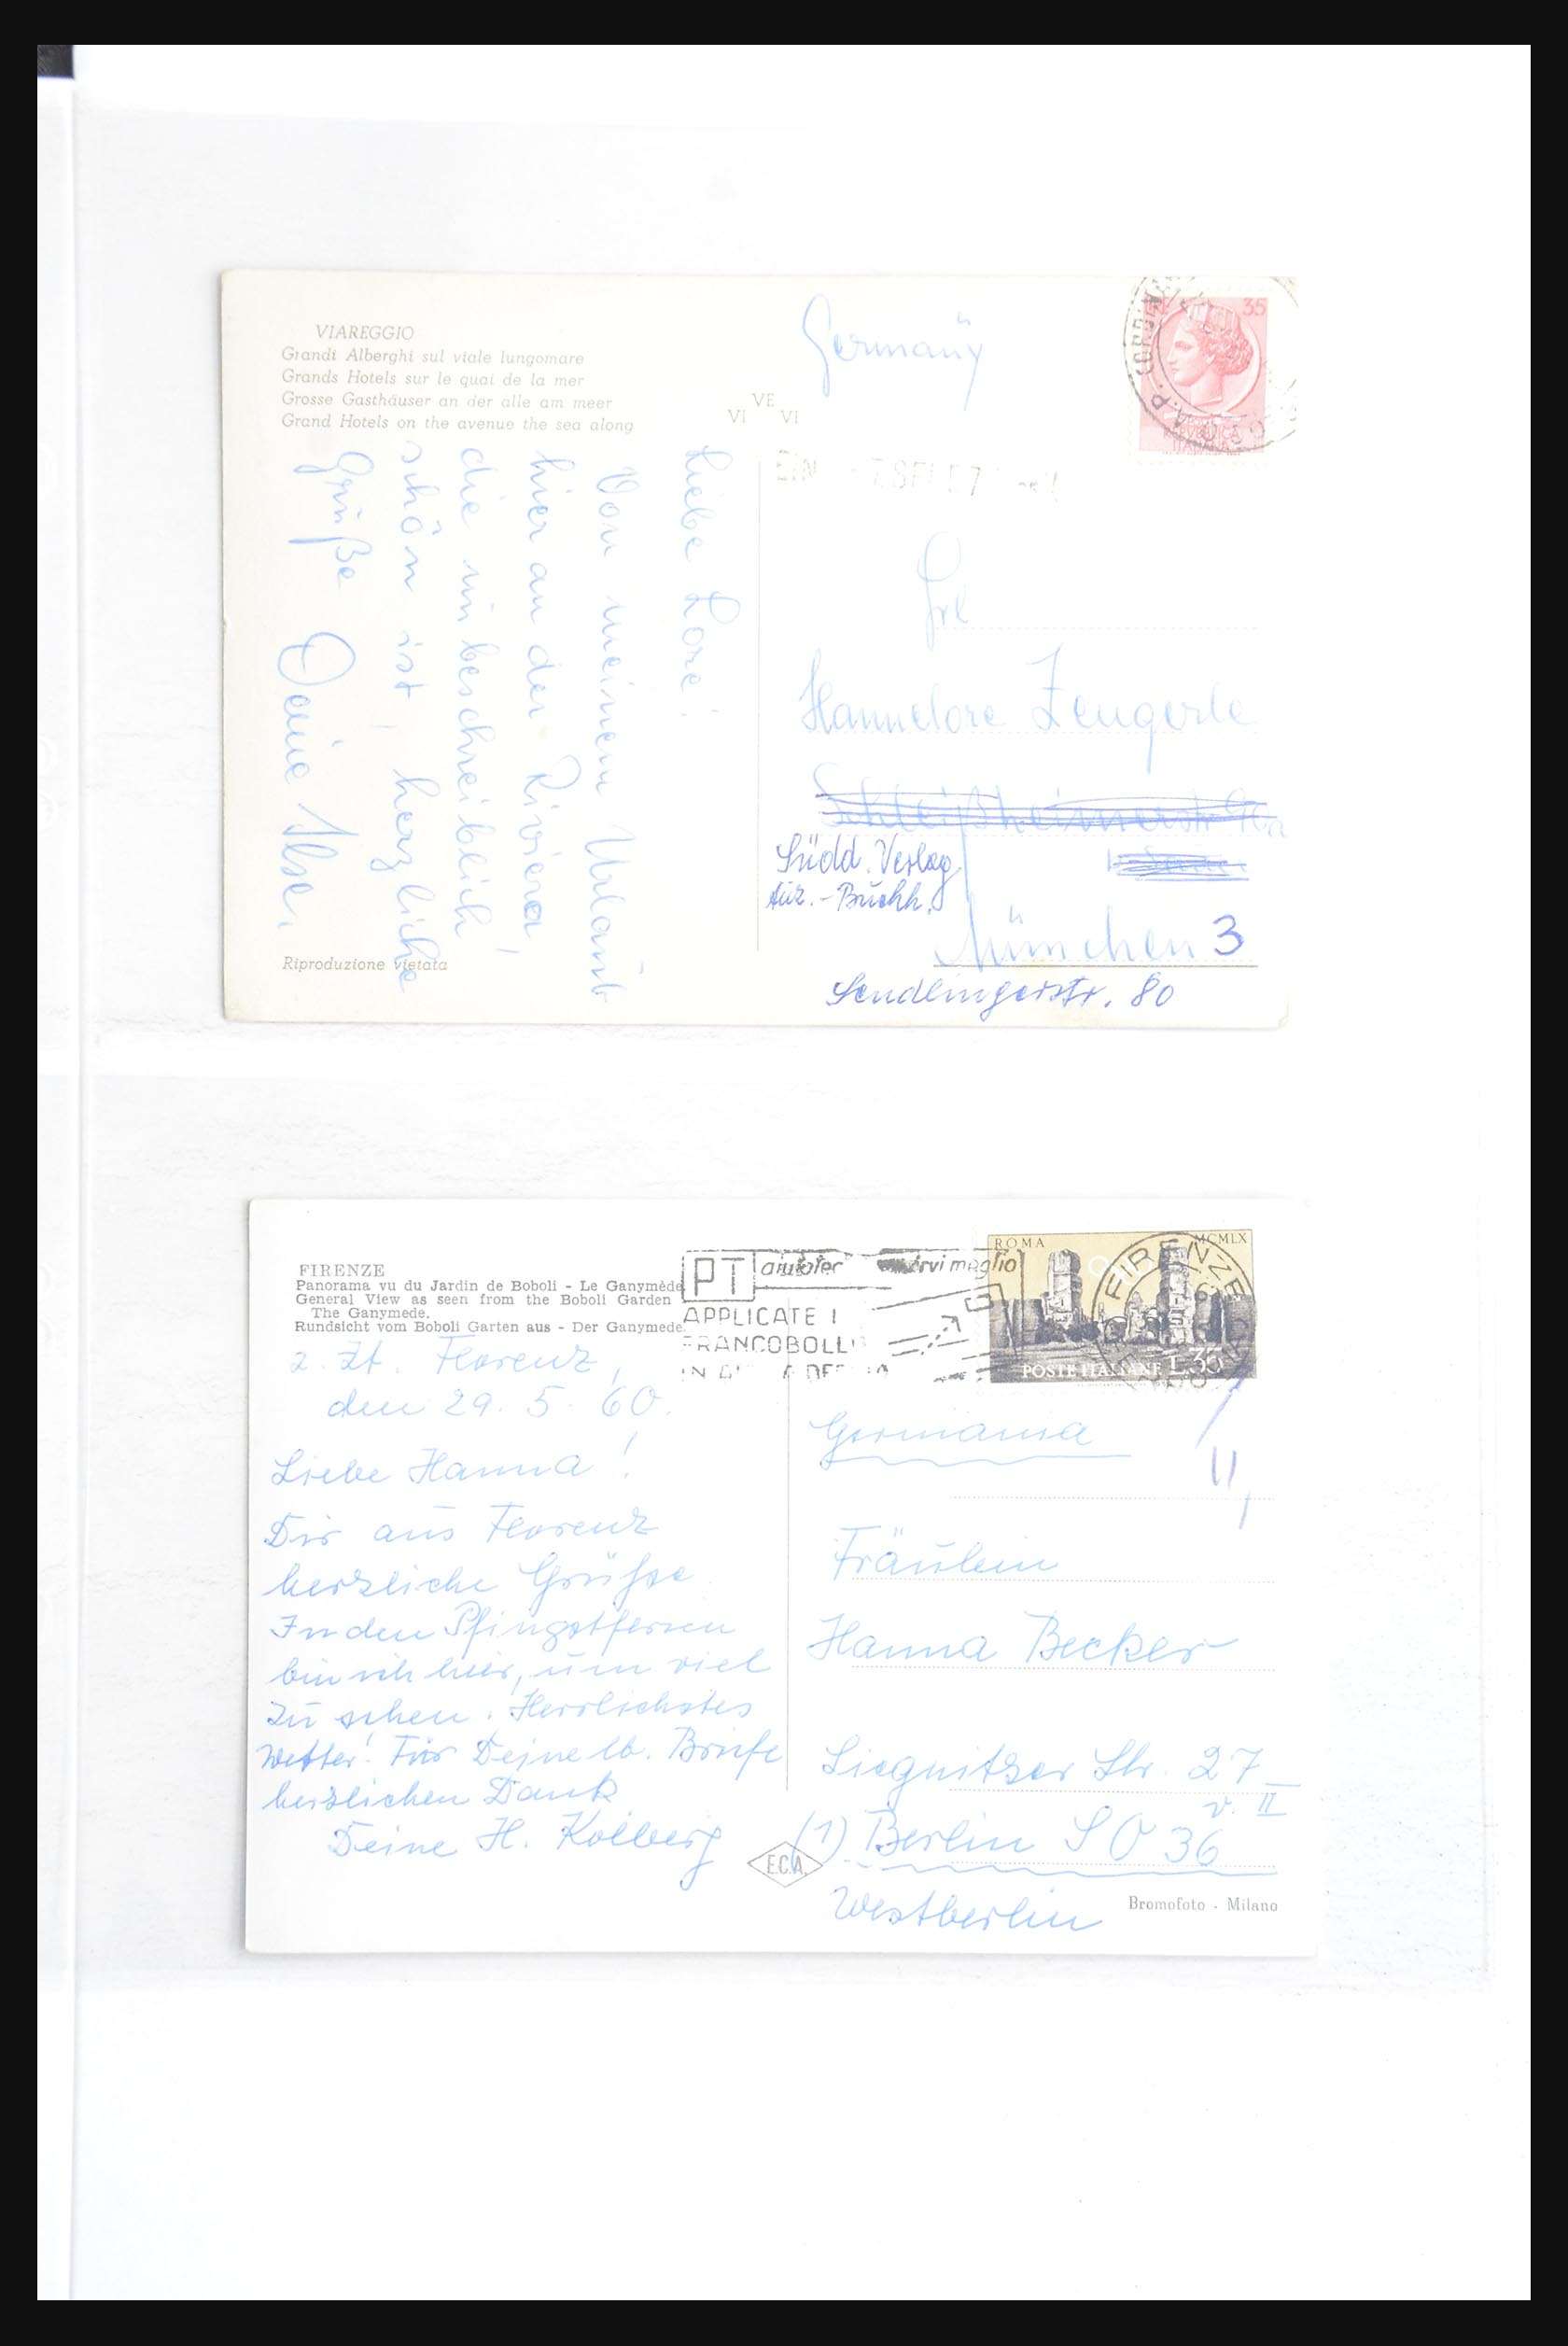 VIAREGGIO
Grandi Alberghi sul viale lungomare
Grands Hotels sur le quai de la mer
Grosse Gasthäuser an der alle am meer
Grand Hotels on the avenue the sea along
VE
VI VI
Liebe Lore!
Von meinem Urlaub
hier an der Riviera,
die unbeschreiblich
schön ist, herzliche
Grüße
Deine Ilse.
Riproduzione vietata
Germany
35
EIN
Frl
Hannelore Zengerle
Schleißheimerstr.
Südd. Verlag
Buchh.
München 3
Sendlingerstr. 80
FIRENZE
Panorama vu du Jardin de Boboli - Le Ganymède
General View as seen from the Boboli Garden
The Ganymede.
Rundsicht vom Boboli Garten aus - Der Ganymede.
z. Zt. Florenz,
den 29. 5. 60.
Liebe Hanna!
Dir aus Florenz
herzliche Grüsse
In den Pfingstferien
bin ich hier, um viel
zu sehen. Herrlichstes
Wetter! Für Deine lb. Briefe
herzlichen Dank
Deine H. Kolberg
PT
meglio
APPLICATE I
FRANCOBOLLI
ROMA MCMLX
FIRENZE
POSTE ITALIANE L.35
Germania
Fräulein
Hanna Becker
Liegnitzer Str. 27
v. II
(1) Berlin SO 36
Westberlin
E.C.A.
Bromofoto - Milano